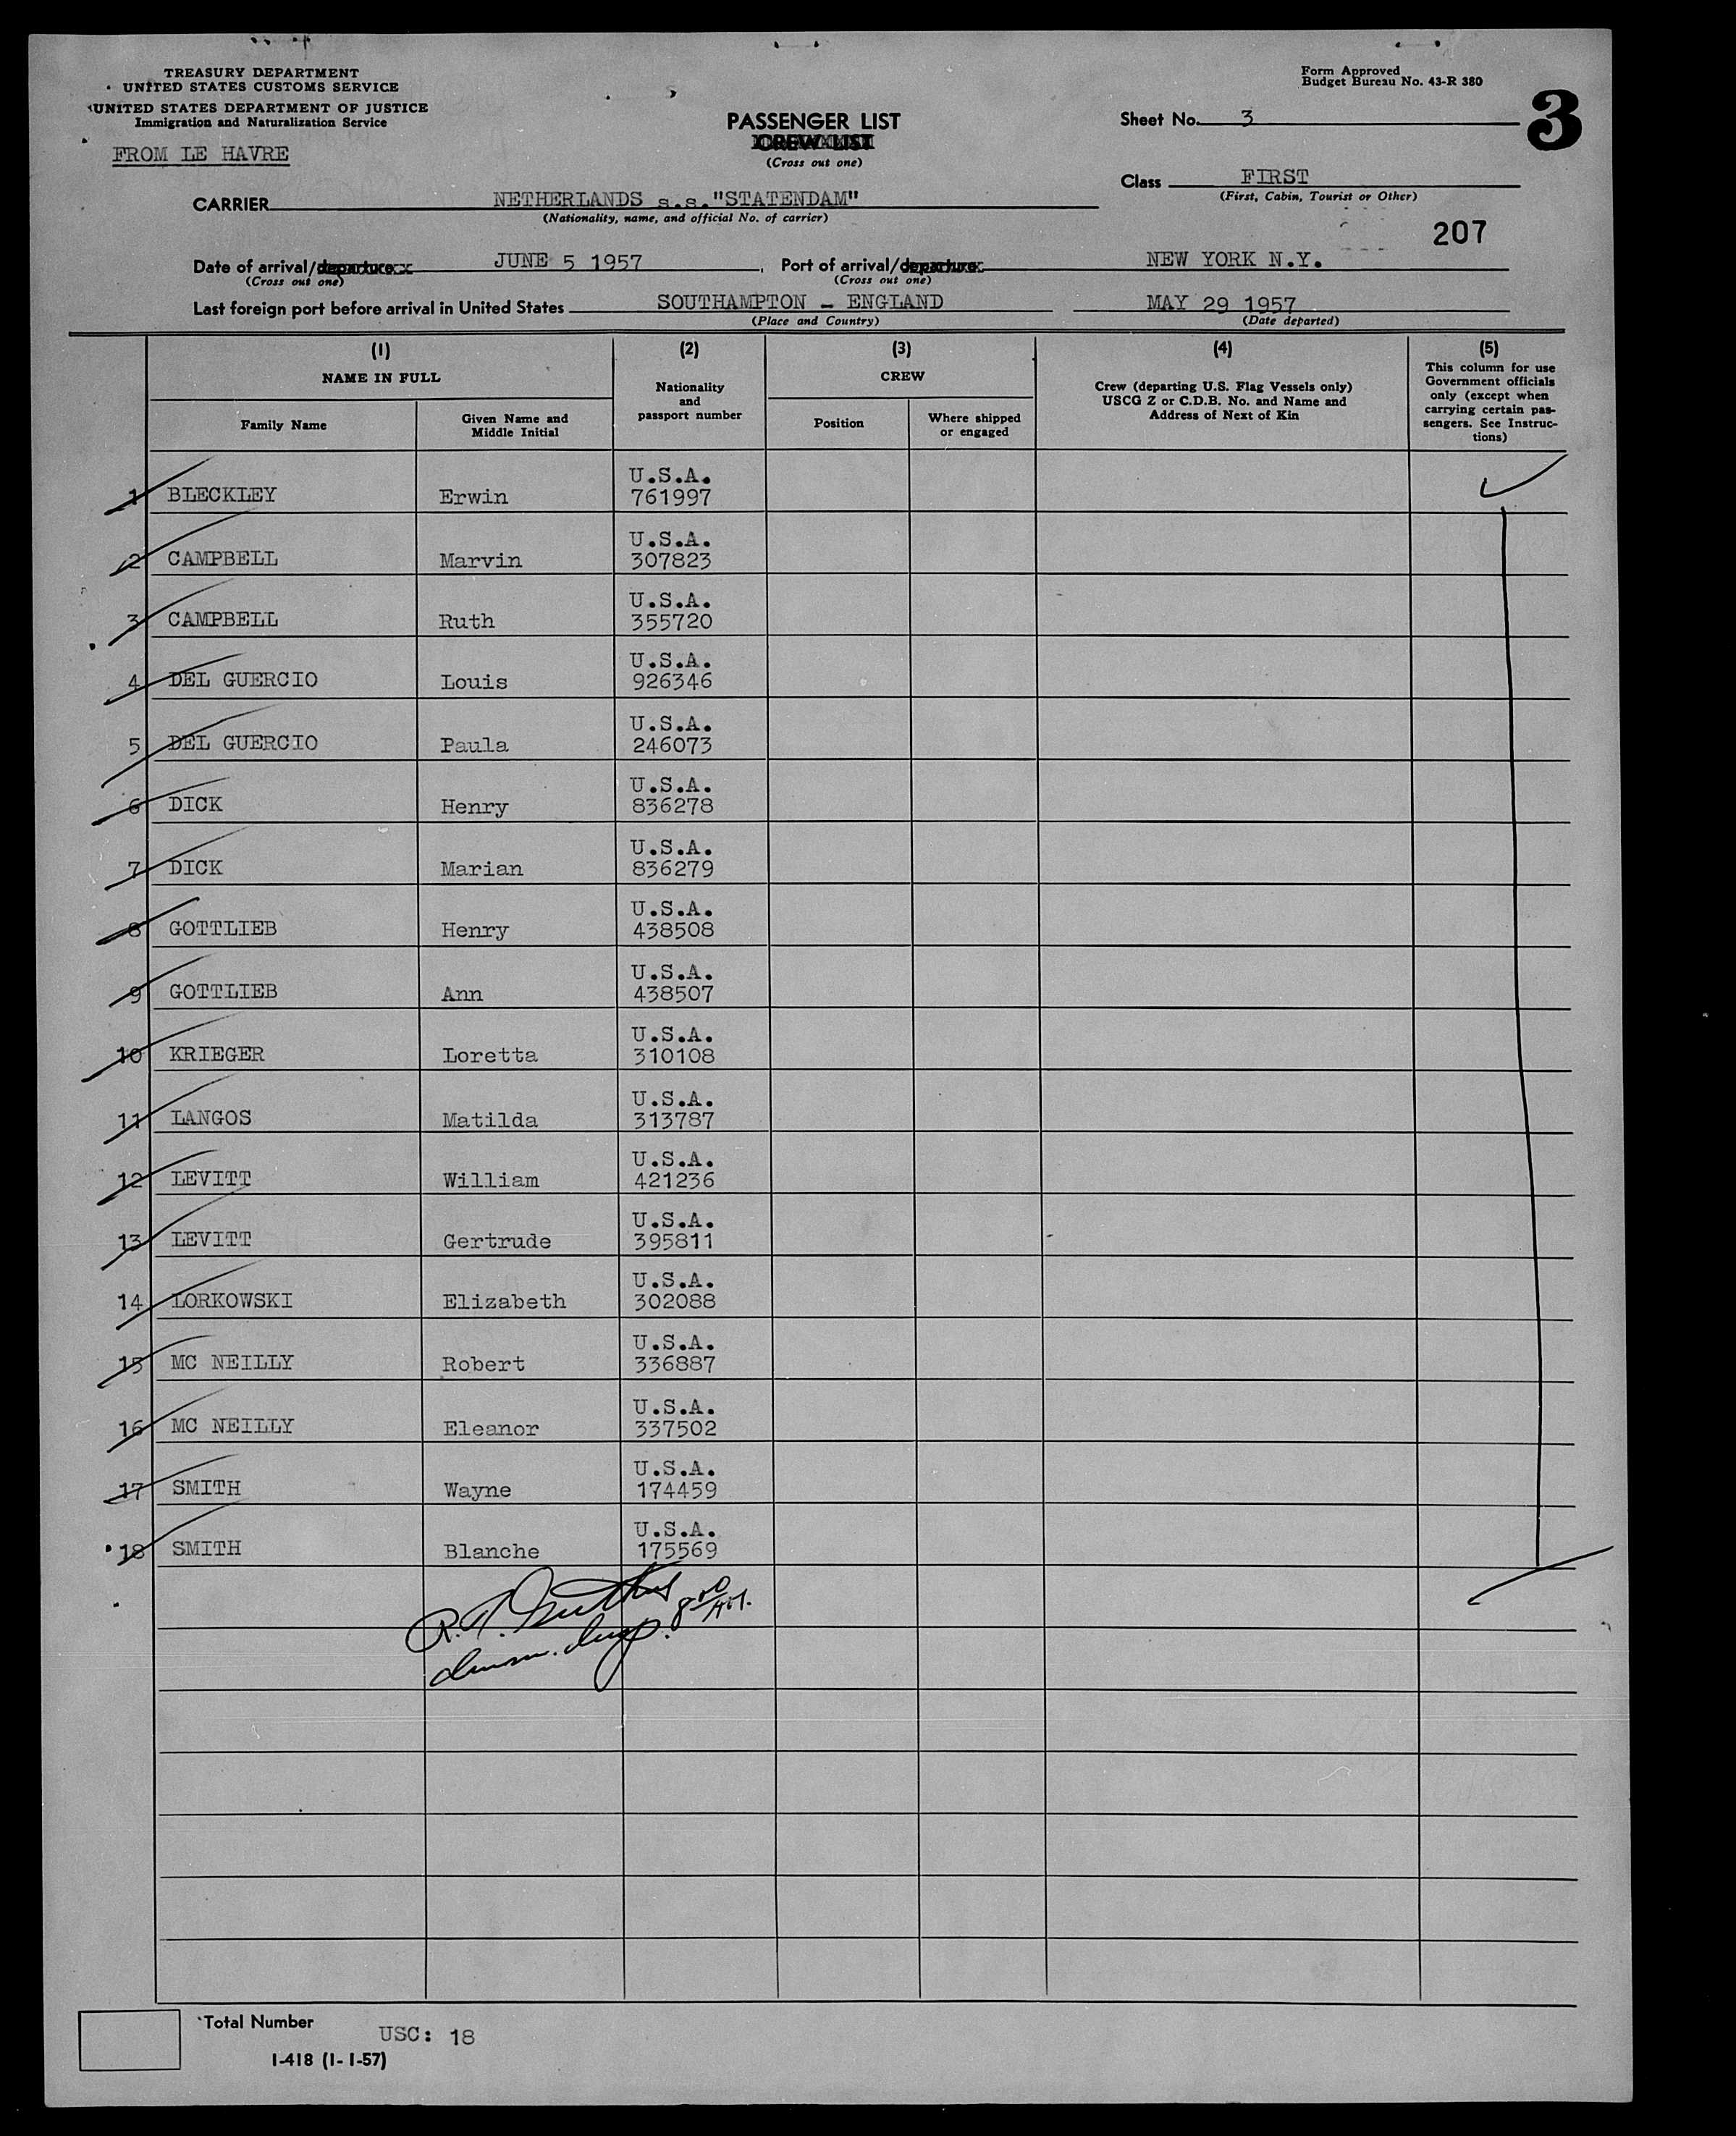 TREASURY DEPARTMENT
UNITED STATES CUSTOMS SERVICE
UNITED STATES DEPARTMENT OF JUSTICE
Immigration and Naturalization Service
FROM LE HAVRE
PASSENGER LIST
CREW LIST
(Cross out one)
Form Approved
Budget Bureau No. 43-R 380
Sheet No. 3
3
Class FIRST
(First, Cabin, Tourist or Other)
CARRIER NETHERLANDS s.s."STATENDAM"
(Nationality, name, and official No. of carrier)
207
Date of arrival/departure JUNE 5 1957, Port of arrival/departure NEW YORK N.Y.
(Cross out one) (Cross out one)
Last foreign port before arrival in United States SOUTHAMPTON - ENGLAND MAY 29 1957
(Place and Country) (Date departed)
(1) (2) (3) (4) (5)
NAME IN FULL
Family Name
Given Name and
Middle Initial
Nationality
and
passport number
CREW
Position
Where shipped
or engaged
Crew (departing U.S. Flag Vessels only)
USCG Z or C.D.B. No. and Name and
Address of Next of Kin
This column for use
Government officials
only (except when
carrying certain pas-
sengers. See Instruc-
tions)
U.S.A.
1 BLECKLEY Erwin 761997
U.S.A.
2 CAMPBELL Marvin 307823
U.S.A.
3 CAMPBELL Ruth 355720
U.S.A.
4 DEL GUERCIO Louis 926346
U.S.A.
5 DEL GUERCIO Paula 246073
U.S.A.
6 DICK Henry 836278
U.S.A.
7 DICK Marian 836279
U.S.A.
8 GOTTLIEB Henry 438508
U.S.A.
9 GOTTLIEB Ann 438507
U.S.A.
10 KRIEGER Loretta 310108
U.S.A.
11 LANGOS Matilda 313787
U.S.A.
12 LEVITT William 421236
U.S.A.
13 LEVITT Gertrude 395811
U.S.A.
14 LORKOWSKI Elizabeth 302088
U.S.A.
15 MC NEILLY Robert 336887
U.S.A.
16 MC NEILLY Eleanor 337502
U.S.A.
17 SMITH Wayne 174459
U.S.A.
18 SMITH Blanche 175569
Total Number USC: 18
I-418 (1-1-57)